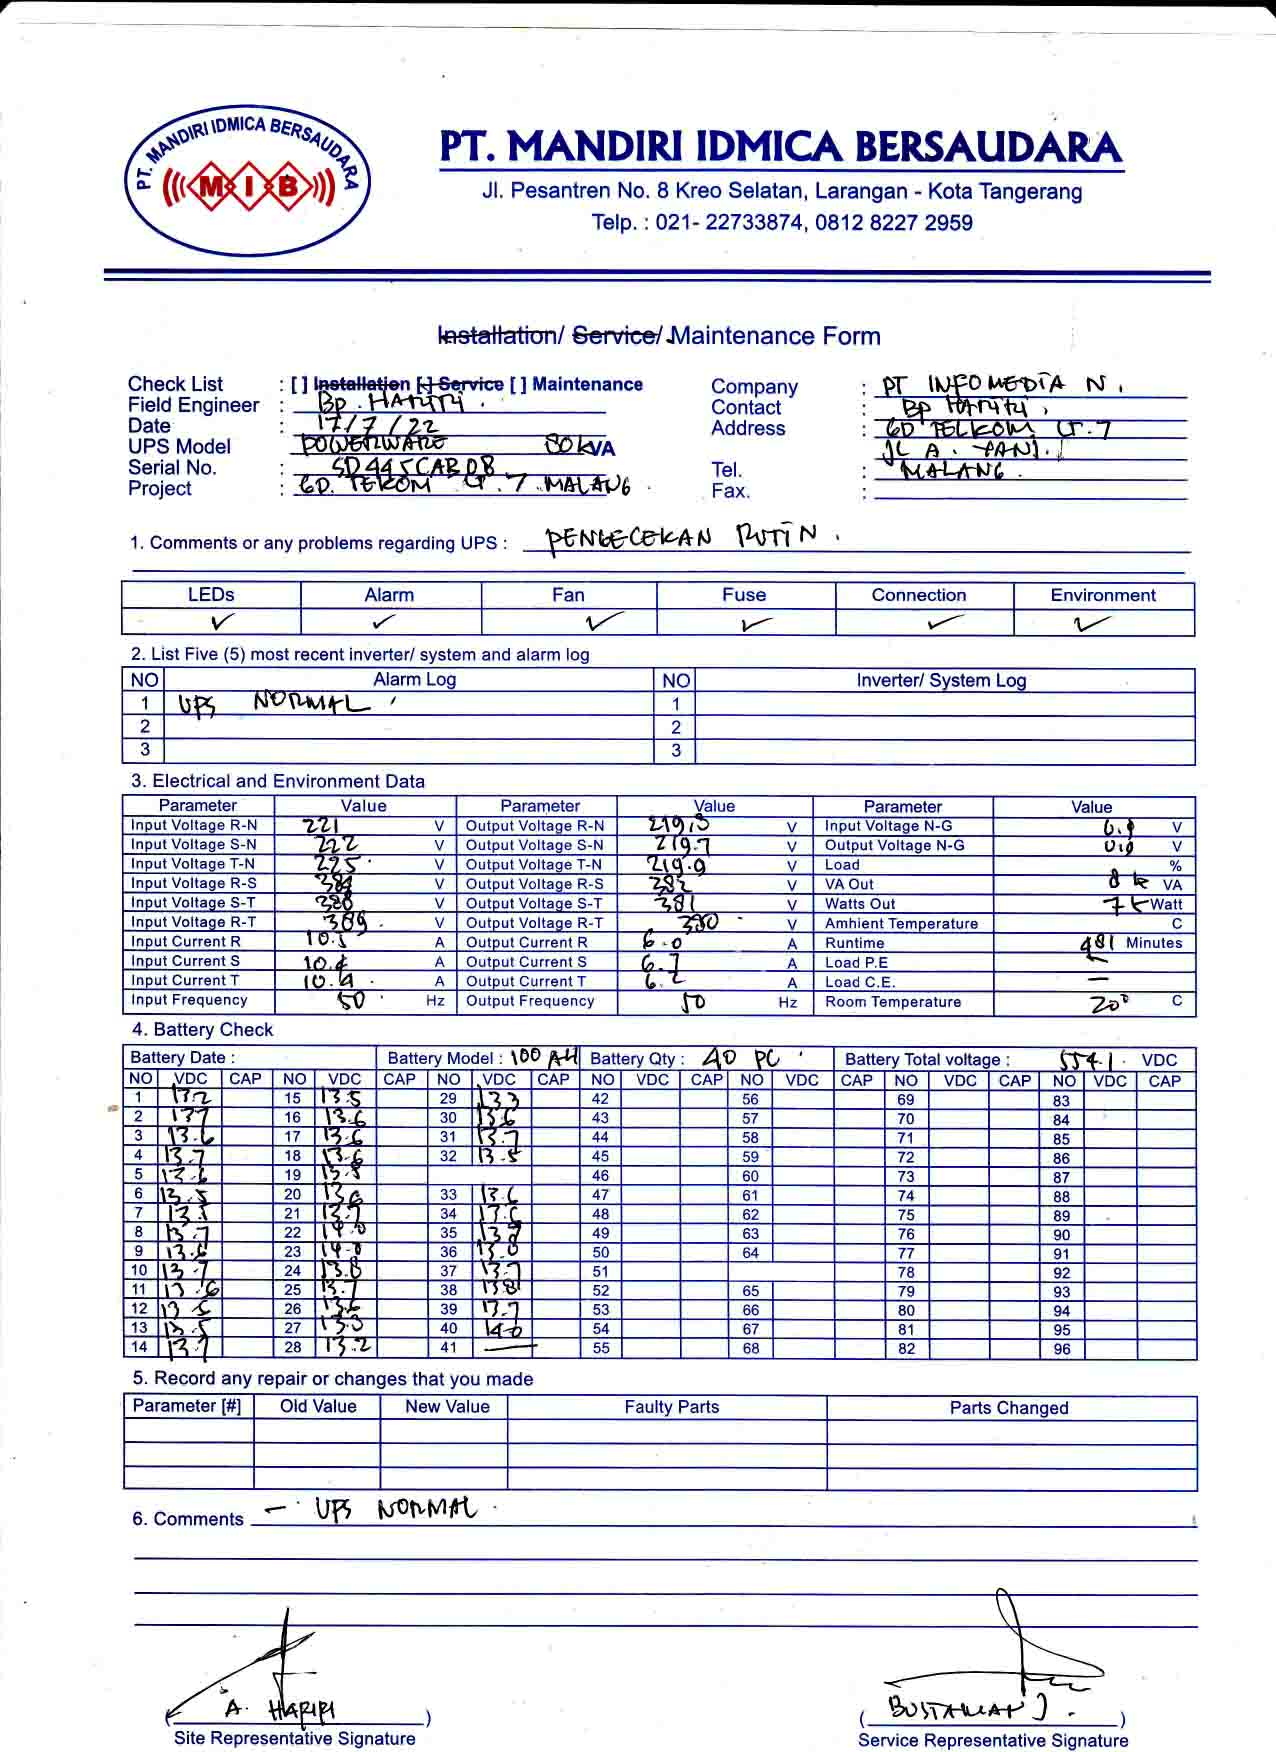 PT. MANDIRI IDMICA BERSAUDARA
MIB
PT. MANDIRI IDMICA BERSAUDARA
Jl. Pesantren No. 8 Kreo Selatan, Larangan - Kota Tangerang
Telp. : 021- 22733874, 0812 8227 2959
Installation/ Service/ Maintenance Form
Check List : [ ] Installation [-] Service [ ] Maintenance
Field Engineer : Bp. HARIRI.
Date : 17/7/22
UPS Model POWERWARE 80 kVA
Serial No. : SD445CAR08
Project : GD. TEKOM LT. 7 MALANG
Company : PT INFOMEDIA N.
Contact : BP HARIRI,
Address : GD TELKOM LT. 7
JL A. YANI.
Tel. : MALANG.
Fax. :
1. Comments or any problems regarding UPS : PENGECEKAN RUTIN.
LEDs Alarm Fan Fuse Connection Environment
✓ ✓ ✓ ✓ ✓ ✓
2. List Five (5) most recent inverter/ system and alarm log
NO Alarm Log NO Inverter/ System Log
1 UPS NORMAL 1
2 2
3 3
3. Electrical and Environment Data
Parameter Value Parameter Value Parameter Value
Input Voltage R-N 221 V Output Voltage R-N V Input Voltage N-G V
Input Voltage S-N 222 V Output Voltage S-N 219.7 V Output Voltage N-G V
Input Voltage T-N 225 V Output Voltage T-N 219.9 V Load %
Input Voltage R-S V Output Voltage R-S 382 V VA Out 8 k VA
Input Voltage S-T V Output Voltage S-T 381 V Watts Out 7 k Watt
Input Voltage R-T V Output Voltage R-T V Amhient Temperature C
Input Current R 10.5 A Output Current R 6.0 A Runtime 481 Minutes
Input Current S A Output Current S 6.7 A Load P.E –
Input Current T 10.4 A Output Current T 6.2 A Load C.E. –
Input Frequency 50 Hz Output Frequency 50 Hz Room Temperature 20° C
4. Battery Check
Battery Date : Battery Model : 100 AH Battery Qty : 40 PC Battery Total voltage : 554.1 VDC
NO VDC CAP NO VDC CAP NO VDC CAP NO VDC CAP NO VDC CAP NO VDC CAP NO VDC CAP
1 13.2 15 13.5 29 13.3 42 56 69 83
2 137 16 13.6 30 13.6 43 57 70 84
3 13.6 17 13.6 31 13.7 44 58 71 85
4 13.7 18 13.6 32 13.5 45 59 72 86
5 13.6 19 13.5 46 60 73 87
6 13.5 20 33 13.6 47 61 74 88
7 21 13.7 34 13.6 48 62 75 89
8 13.7 22 14.0 35 49 63 76 90
9 13.6 23 14.0 36 50 64 77 91
10 13.7 24 13.8 37 13.7 51 78 92
11 13.6 25 13.7 38 13.8 52 65 79 93
12 26 13.6 39 13.7 53 66 80 94
13 13.5 27 13.3 40 14.0 54 67 81 95
14 13.7 28 13.2 41 — 55 68 82 96
5. Record any repair or changes that you made
Parameter [#] Old Value New Value Faulty Parts Parts Changed
6. Comments – UPS NORMAL
(A. HARIRI)
Site Representative Signature
(BUSTAMAN J.)
Service Representative Signature